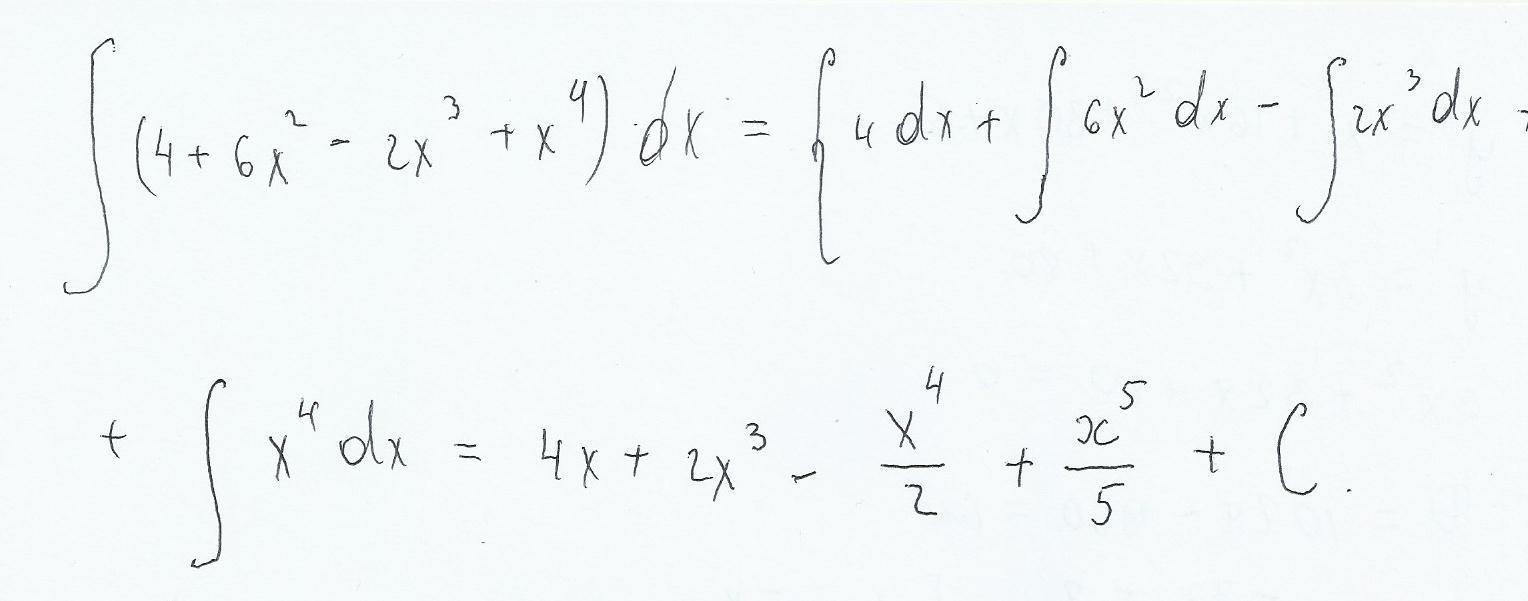 ∫(4 + 6x² - 2x³ + x⁴) dx = ∫4 dx + ∫6x² dx - ∫2x³ dx +
+ ∫x⁴ dx = 4x + 2x³ - x⁴/2 + x⁵/5 + C.